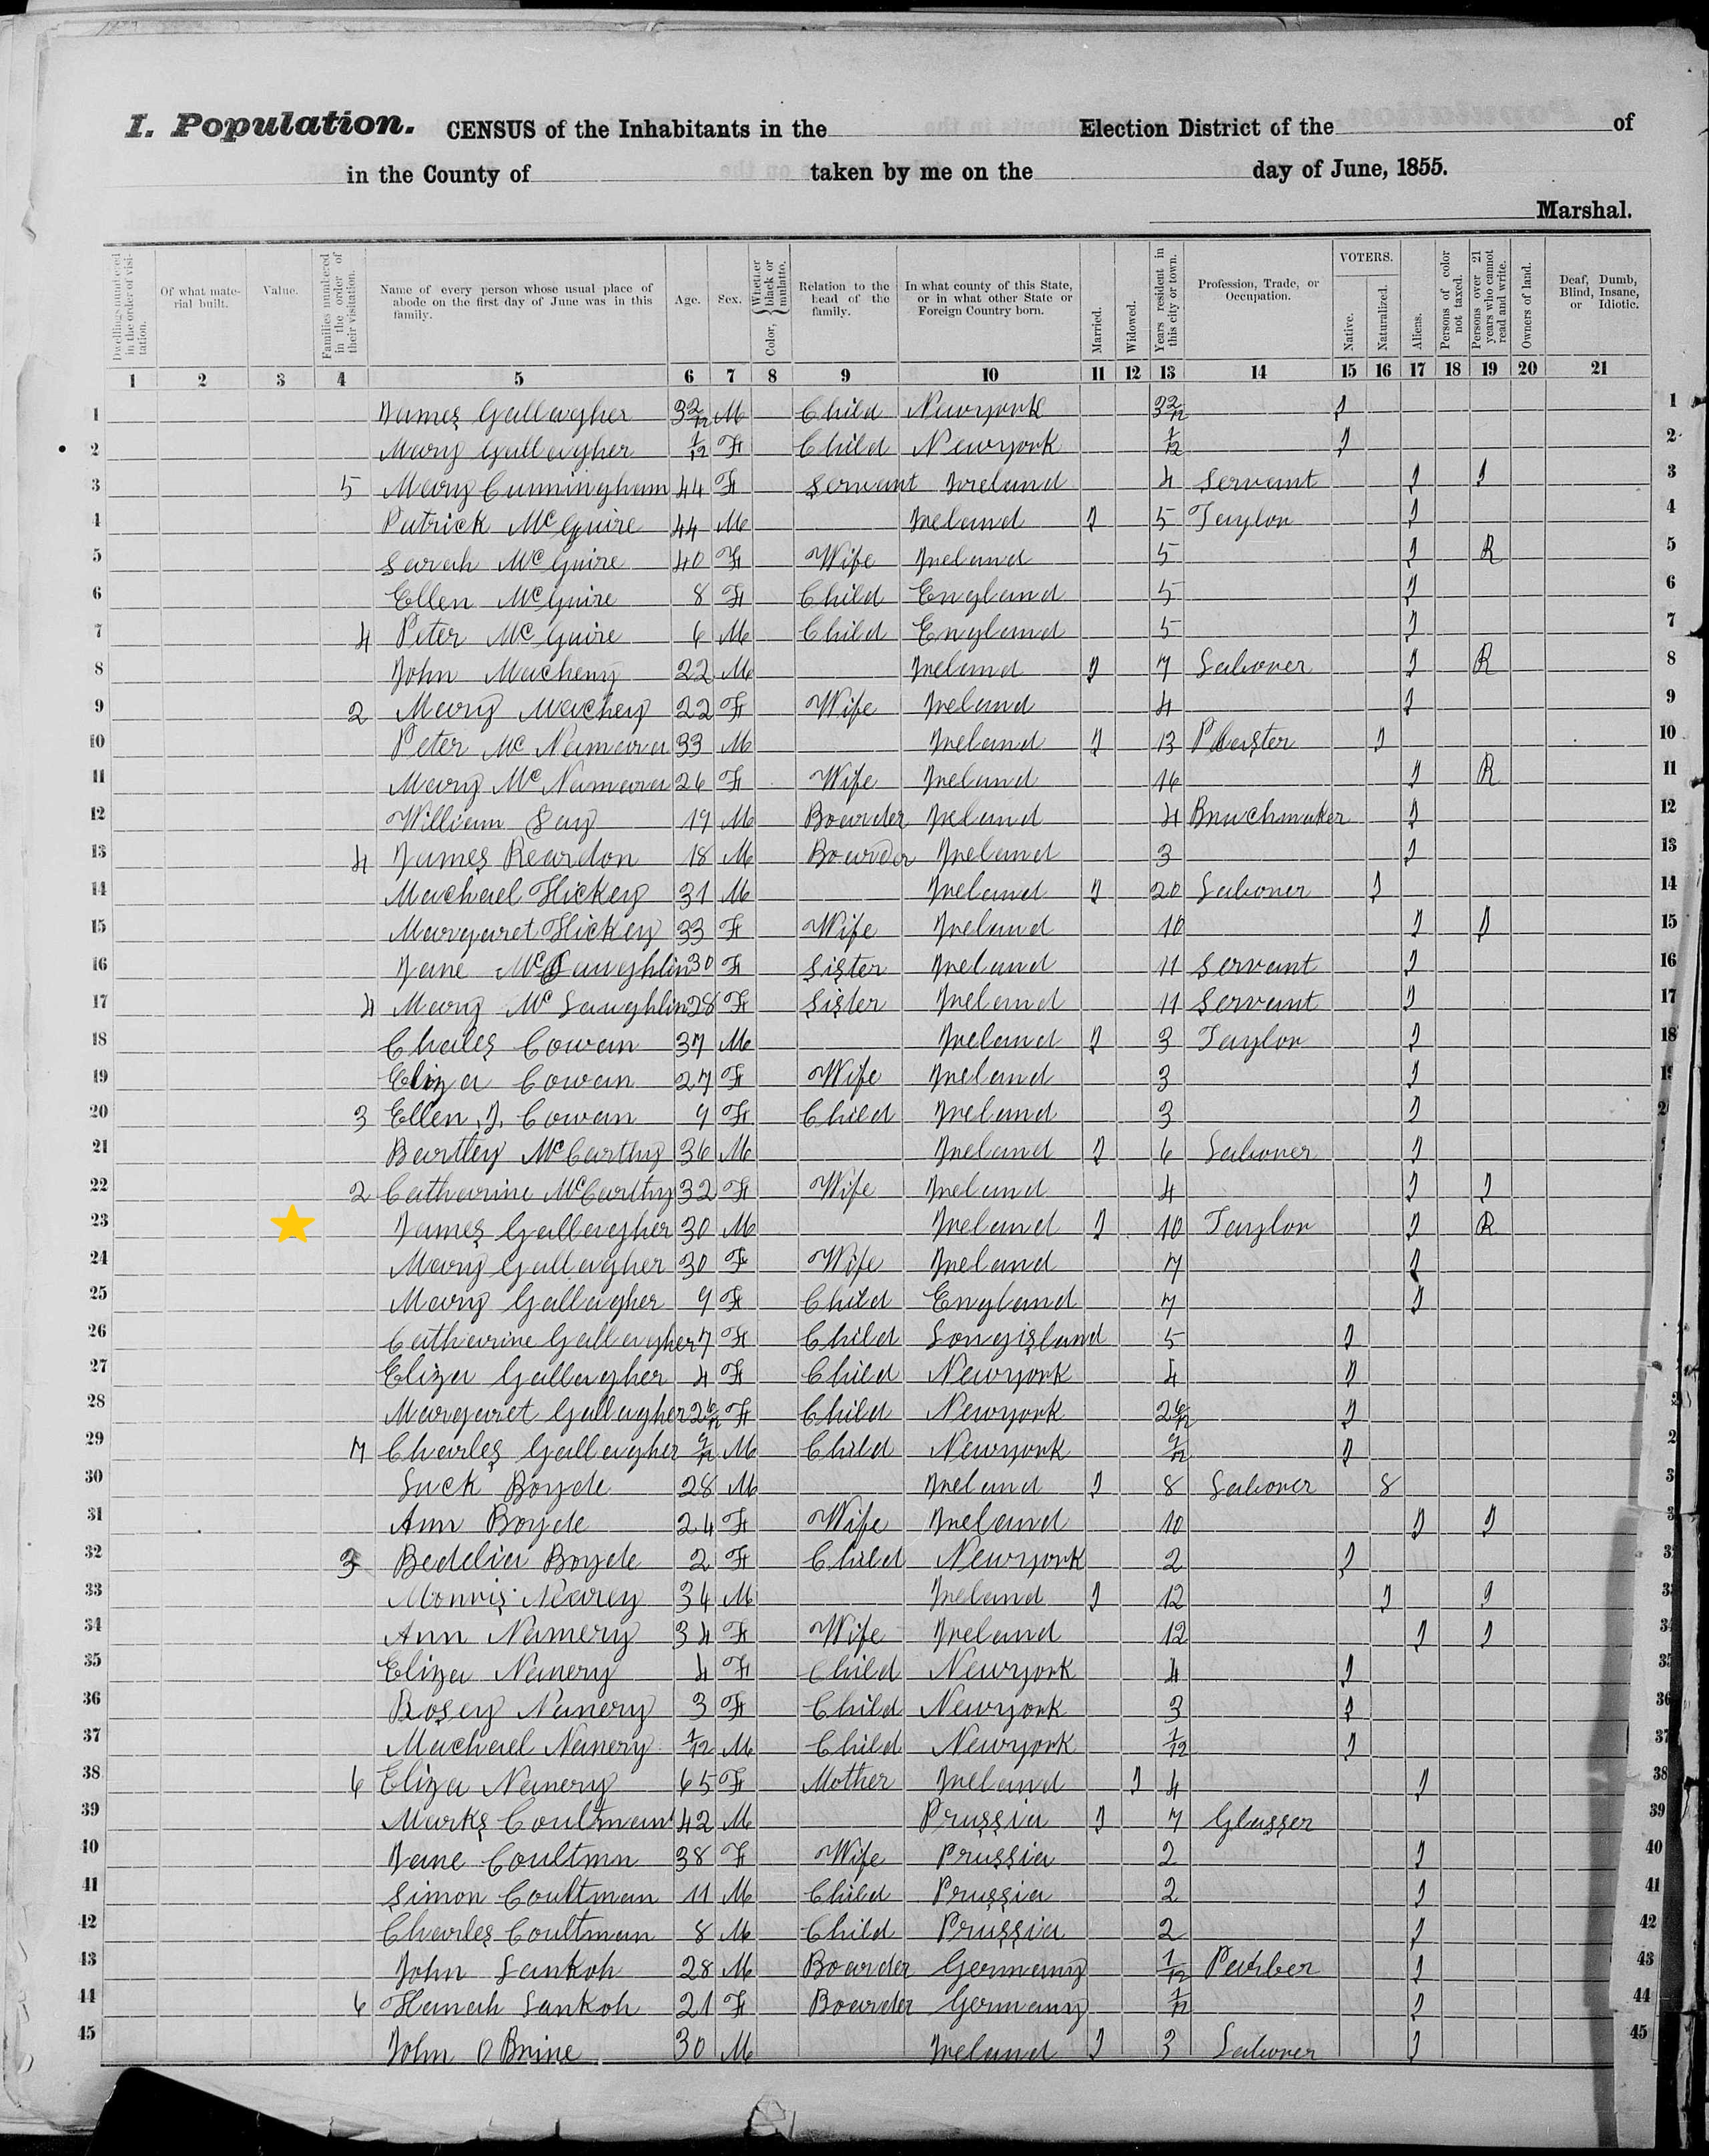 I. Population. CENSUS of the Inhabitants in the Election District of the of
in the County of taken by me on the day of June, 1855.
Marshal.
Dwellings numbered in the order of visitation. Of what material built. Value. Families numbered in the order of their visitation. Name of every person whose usual place of abode on the first day of June was in this family. Age. Sex. Color, Whether black or mulatto. Relation to the head of the family. In what county of this State, or in what other State or Foreign Country born. Married. Widowed. Years resident in this city or town. Profession, Trade, or Occupation. VOTERS. Native. Naturalized. Aliens. Persons of color not taxed. Persons over 21 years who cannot read and write. Owners of land. Deaf, Dumb, Blind, Insane, or Idiotic.
1 2 3 4 5 6 7 8 9 10 11 12 13 14 15 16 17 18 19 20 21
1 James Gallaugher 3 2/12 M Child Newyork 3 2/12 1 1
2 Mary Gallaugher 1/12 F Child Newyork 1/12 1 2
3 5 Mary Cunningham 44 F Servant Ireland 4 Servant 1 1 3
4 Patrick McGuire 44 M Ireland 1 5 Taylor 1 4
5 Sarah McGuire 40 F Wife Ireland 5 1 R 5
6 Ellen McGuire 8 F Child England 5 1 6
7 4 Peter McGuire 6 M Child England 5 1 7
8 John Macheny 22 M Ireland 1 7 Labourer 1 R 8
9 2 Mary Machey 22 F Wife Ireland 4 1 9
10 Peter McNamara 33 M Ireland 1 13 1 10
11 Mary McNamara 26 F Wife Ireland 16 1 R 11
12 William Lay 19 M Boarder Ireland 4 1 12
13 4 James Reardon 18 M Boarder Ireland 3 1 13
14 Machael Hickey 31 M Ireland 1 20 Labourer 1 14
15 Margaret Hickey 33 F Wife Ireland 10 1 1 15
16 Jane McLaughlin 30 F Sister Ireland 11 Servant 1 16
17 4 Mary McLaughlin 28 F Sister Ireland 11 Servant 1 17
18 Chales Cowan 37 M Ireland 1 3 Taylor 1 18
19 Eliza Cowan 27 F Wife Ireland 3 1 19
20 3 Ellen J. Cowan 9 F Child Ireland 3 1
21 Bartley McCarthy 36 M Ireland 1 6 Labourer 1
22 2 Catharine McCarthy 32 F Wife Ireland 4 1 1
23 James Gallaugher 30 M Ireland 1 10 Taylor 1 R
24 Mary Gallaugher 30 F Wife Ireland 7 1
25 Mary Gallaugher 9 F Child England 7 1
26 Catharine Gallaugher 7 F Child Longisland 5 1
27 Eliza Gallaugher 4 F Child Newyork 4 1
28 Margaret Gallaugher 2 6/12 F Child Newyork 2 6/12 1
29 7 Charles Gallaugher 9/12 M Child Newyork 9/12 1
30 Luck Boyde 28 M Ireland 1 8 Labourer 8
31 Ann Boyde 24 F Wife Ireland 10 1 1
32 3 Bedelia Boyde 2 F Child Newyork 2 1
33 Morris Nearey 34 M Ireland 1 12 1 1
34 Ann Namery 34 F Wife Ireland 12 1 1
35 Eliza Namery 4 F Child Newyork 4 1 35
36 Rosey Nanery 3 F Child Newyork 3 1 36
37 Machael Nanery 1/12 M Child Newyork 1/12 1 37
38 6 Eliza Nanery 65 F Mother Ireland 1 4 1 38
39 Marks Coultman 42 M Prussia 1 7 Glasser 39
40 Jane Coultmn 38 F Wife Prussia 2 1 40
41 Simon Coultman 11 M Child Prussia 2 1 41
42 Charles Coultman 8 M Child Prussia 2 1 42
43 John Lankoh 28 M Boarder Germany 1/12 1 43
44 6 Hanah Lankoh 21 F Boarder Germany 1/12 1 44
45 John O Brine 30 M Ireland 1 3 Labourer 1 45